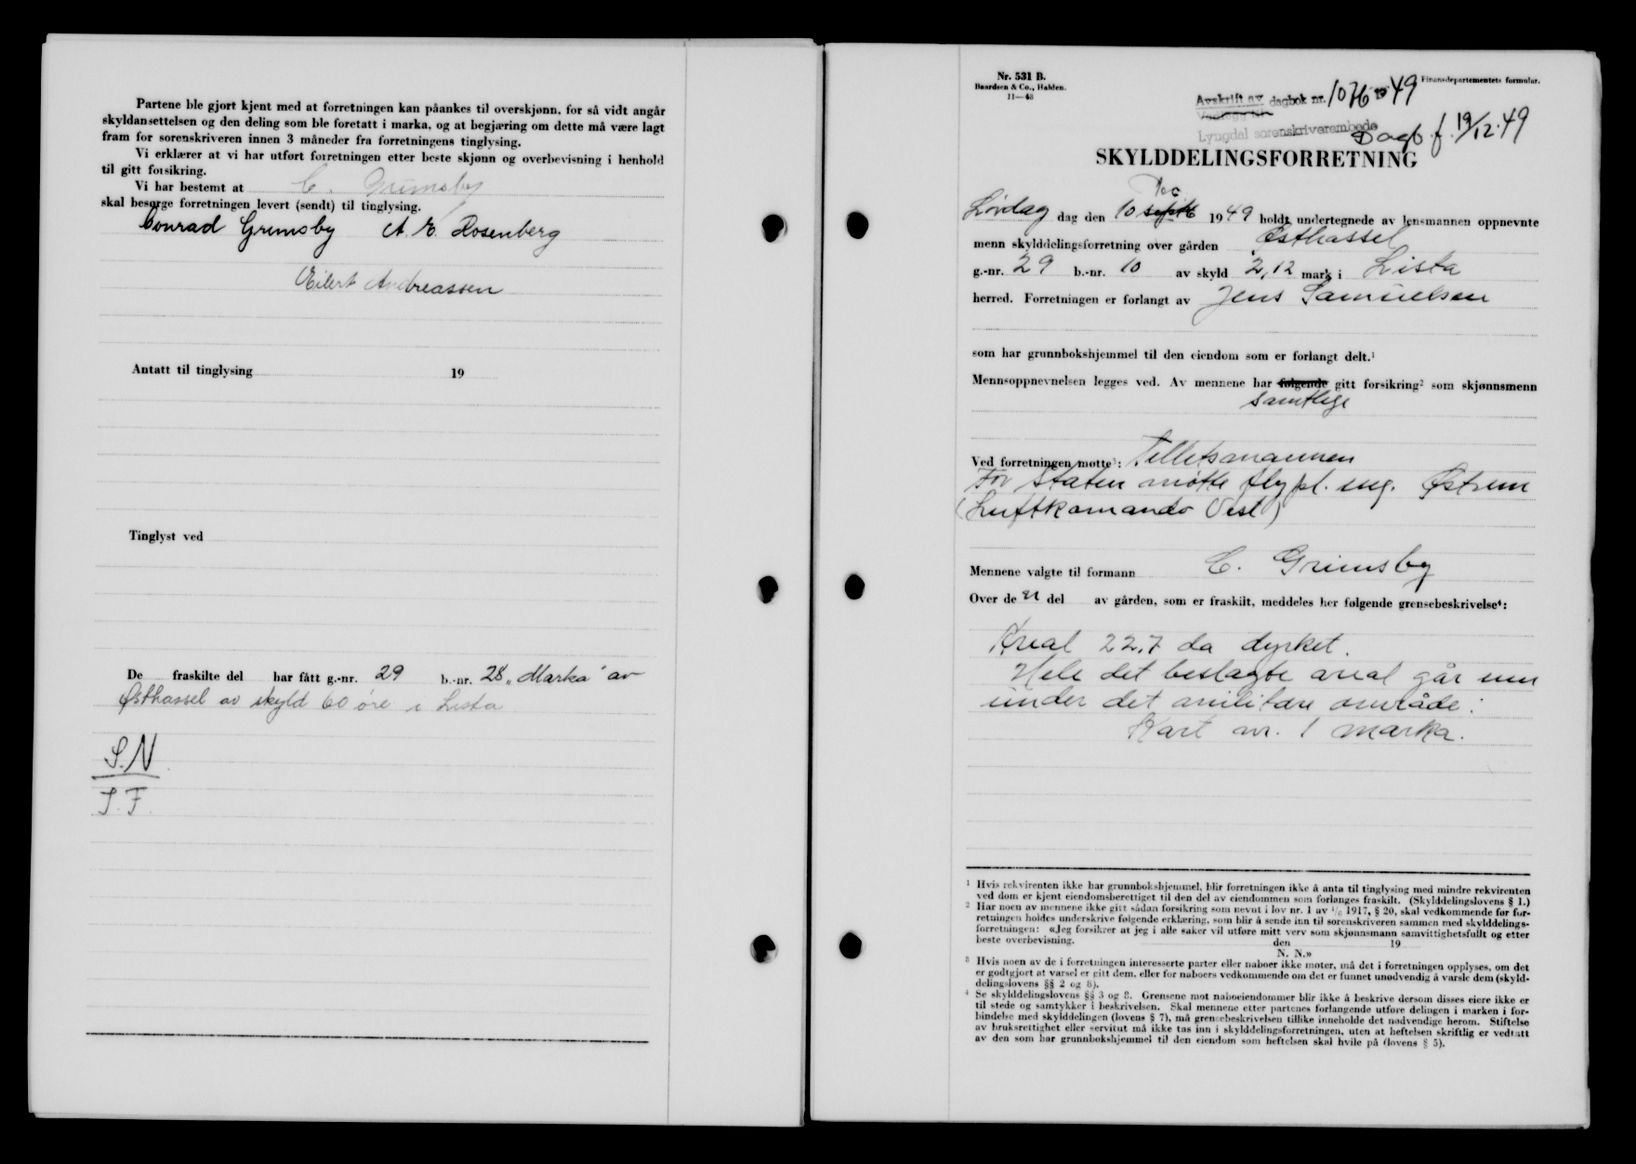 Partene ble gjort kjent med at forretningen kan påankes til overskjønn, for så vidt angår
skyldansettelsen og den deling som ble foretatt i marka, og at begjæring om dette må være lagt
fram for sorenskriveren innen 3 måneder fra forretningens tinglysing.
Vi erklærer at vi har utført forretningen etter beste skjønn og overbevisning i henhold
til gitt forsikring.
Vi har bestemt at C. Grimsby
skal besørge forretningen levert (sendt) til tinglysing.
Conrad Grimsby A. E. Rosenberg
Eilert Andreassen
Antatt til tinglysing 19
Tinglyst ved
De fraskilte del har fått g.-nr. 29 b.-nr. 28 „Marka" av
Østhassel av skyld 60 øre i Lista
S.N
S.F.
Nr. 531 B.
Baardsen & Co., Halden.
11—48
Finansdepartementets formular.
Avskrift av dagbok nr. 1076 19 49
Lyngdal sorenskriverembede
Dagb. f. 19/12-49
SKYLDDELINGSFORRETNING
Des
Lørdag dag den 10 septb 1949 holdt undertegnede av lensmannen oppnevnte
menn skylddelingsforretning over gården Østhassel
g.-nr. 29 b.-nr. 10 av skyld 2,12 mark i Lista
herred. Forretningen er forlangt av Jens Samuelsen
som har grunnbokshjemmel til den eiendom som er forlangt delt.¹
Mennsoppnevnelsen legges ved. Av mennene har følgende gitt forsikring² som skjønnsmenn
samtlige
Ved forretningen møtte³: Tillitsmannen
For Staten møtte flypl. ing. Østrem
(Luftkomando Vest)
Mennene valgte til formann C. Grimsby
Over de n del av gården, som er fraskilt, meddeles her følgende grensebeskrivelse⁴:
Areal 22,7 da dyrket.
Hele det beslagte areal går inn
under det militære område.
Kart nr. 1 marka.
¹ Hvis rekvirenten ikke har grunnbokshjemmel, blir forretningen ikke å anta til tinglysing med mindre rekvirenten
ved dom er kjent eiendomsberettiget til den del av eiendommen som forlanges fraskilt. (Skylddelingslovens § 1.)
² Har noen av mennene ikke gitt sådan forsikring som nevnt i lov nr. 1 av 1/6 1917, § 20, skal vedkommende før for-
retningen holdes underskrive følgende erklæring, som blir å sende inn til sorenskriveren sammen med skylddelings-
forretningen: «Jeg forsikrer at jeg i alle saker vil utføre mitt verv som skjønnsmann samvittighetsfullt og etter
beste overbevisning. den 19
N. N.»
³ Hvis noen av de i forretningen interesserte parter eller naboer ikke møter, må det i forretningen opplyses, om det
er godtgjort at varsel er gitt dem, eller for naboers vedkommende om det er funnet unødvendig å varsle dem (skyld-
delingslovens §§ 2 og 8).
⁴ Se skylddelingslovens §§ 3 og 8. Grensene mot naboeiendommer blir ikke å beskrive dersom disses eiere ikke er
til stede og samtykker i beskrivelsen. Skal mennene etter partenes forlangende utføre delingen i marken i for-
bindelse med skylddelingen (lovens § 7), må grensebeskrivelsen tillike inneholde det nødvendige herom. Stiftelse
av bruksrettighet eller servitut må ikke tas inn i skylddelingsforretningen, uten at heftelsen skriftlig er vedtatt
av den som har grunnbokshjemmel til den eiendom som heftelsen skal hvile på (lovens § 5).